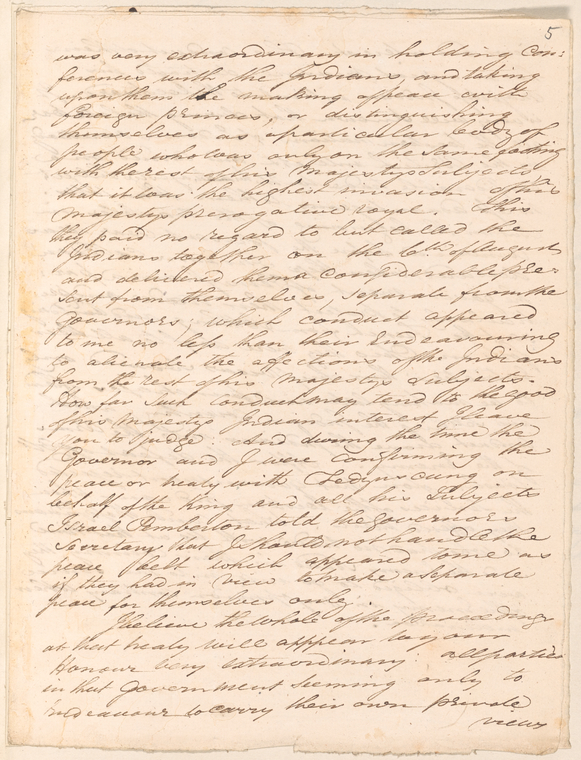 5
was very extraordinary in holding Con:
ferences with the Indians, and taking
upon them the making appeace with
foreign princes, or distinguishing
themselves as aparticular body of
people who was only on the same footing
with the rest of his Majestys Subjects
that it was the highest invasion of his
Majestys prerogative royal. This
they paid no regard to but called the
Indians together on the 6th of August
and delivered them a Considerable pre-
sent from themselves, separate from the
Governors; which conduct appeared
to me no less than their Endeavouring
to alienate the affections of the Indians
from the rest of his Majestys Subjects.
How far such conduct may tend to the good
of his Majestys Indian interest I leave
you to judge. And during the time the
Governor and I were confirming the
peace or treaty with Tedyuscung on
behalf of the King and all his Subjects
Israel Pemberton told the Governors
Secretary that I should not handle the
peace belt which appeared to me as
if they had in view to make a separate
peace for themselves only.
I believe the whole of the proceedings
at that treaty will appear to your
Honour very extraordinary all parties
in that Government seeming only to
endeavour to carry their own private
views